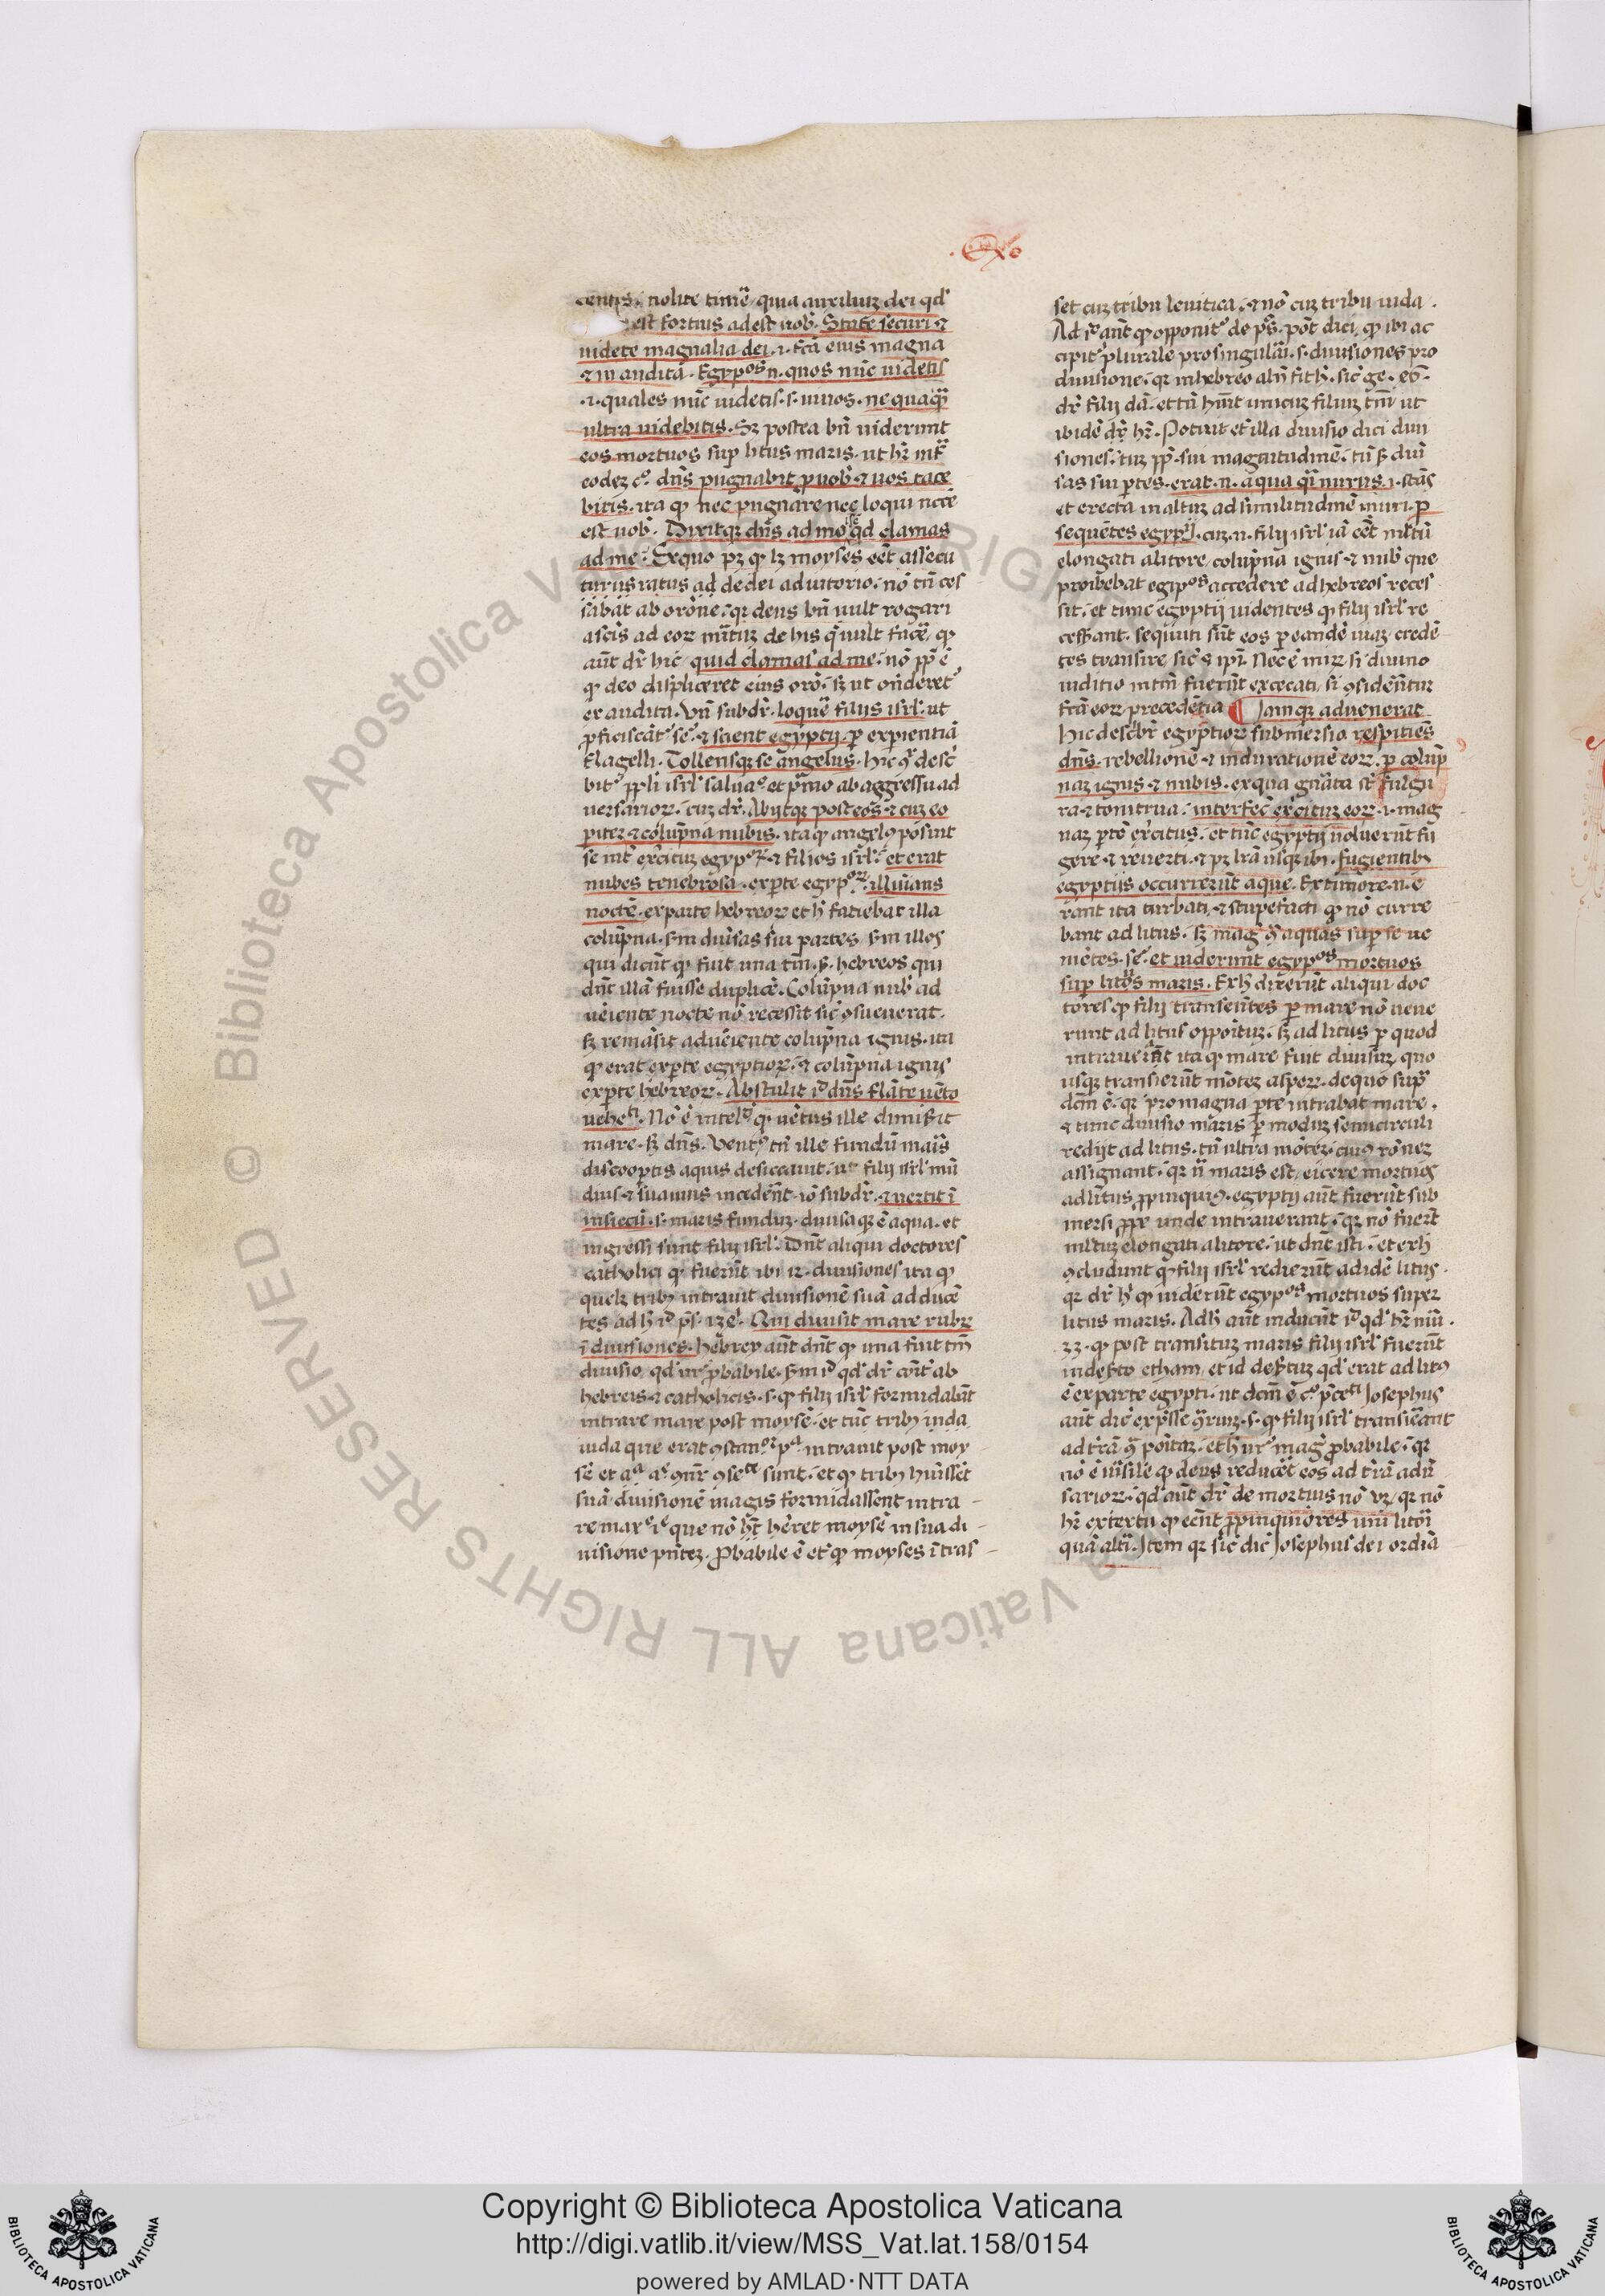 .Exo
nolite timē quia auxiliuʒ dei qđ
est fortius adest uob̾. State securi ⁊
uidete magnalia dei .i. fc̄a eius magna
⁊ inaudita. Egypᵒˢ .n. quos nūc uidetis
.i. quales nūc uidetis .s. uiuos. ne quaqȝ
ultra uidebitis. Sȝ postea bn̄ uiderunt
eos mortuos sup litus maris. ut hr̄ infᵃ
eodeʒ c°. dn̄s pugnabit ꝓ uob̾ ⁊ uos tace
bitis. ita ꝙ nec pugnare nec loqui necē
est uob̾. Dixitqȝ dn̄s ad moy̾sē qd clamas
ad me. Ex quo pȝ ꝙ lȝ moyses eēt assecu
turus ratus ad de dei adiutorio. nō tn̄ ces
sabat ab orōne. qꝛ deus bn̄ uult rogari
a sc̄is ad eoꝝ mītuʒ de his q̄ uult facē. ꝙ
aūt dr̄ hic quid clamas ad me. nō ꝓp̄ ē
ꝙ deo displiceret eius orō. sȝ ut ōnderetᵘʳ
exaudita. Vn̄ subdr̄. loquē filiis isrl̄. ut
ꝓficiscātᵘʳ sc̄. ⁊ scient egyptij. ꝑ experientiā
flagelli. Tollensqȝ se angelus. Hic ꝯᵉ desc̾
bitᵘʳ ppl̄i isrl̄ saluaᵒ et pᵐo ab aggressu ad
uersarioꝝ. cuʒ dr̄. Abijtqȝ post eos ⁊ cuʒ eo
pariter ⁊ colūpna nubis. ita ꝙ angelꝰ posuit
se int̾ exc̾ituʒ egypᵒꝝ ⁊ filios isrl̄. et erat
nubes tenebrosa. ex pte egypᵒꝝ. illuīans
noctē. ex parte hebreoꝝ et h̄ faciebat illa
colūpna. sm̄ diūsas sui partes. sm̄ illos
qui dicūt ꝙ fuit una tm̄. sȝ hebreos qui
dn̄t illā fuisse duplicē. Colūpna nub̾ ad
ueiente nocte nō recessit sic̾ ꝯsueuerat.
sȝ remāsit adueiente colūpna ignis. ita
ꝙ erat ex pte egyptioꝝ. ⁊ colūpna ignis
ex pte hebreoꝝ. Abstulit iᵈ dn̄s flāte uēto
uehetⁱ. Nō ē intelᵈ ꝙ uētus ille diuisit
mare. sȝ dn̄s. Ventꝰ tn̄ ille fundū maris
discooptis aquis desiccauit. ut filij isrl̄ mū
dius ⁊ suauius incedēt. iō subdr̄. ⁊ uertit ī
in siccū. s. maris funduʒ. diuisaqȝ ē aqua. et
ingressi sunt filij isrl̄. Dn̄t aliqui doctores
catholici ꝙ fuerūt ibi 12. diuisiones ita ꝙ
quelȝ tribꝰ intrauit diuisionē suā adducē
tes ad h̄ iᵈ ps̄. 135. Qui diuisit mare rubꝝ
ī diuisiones. Hebrey aūt dn̄t ꝙ una fuit tm̄
diuisio. qđ uidetᵘʳ ꝓbabile. sm̄ iᵈ qđ dr̄ cōit̾ ab
hebreis ⁊ catholicis. s. ꝙ filij isrl̄ formidabāt
intrare mare post moysē. et tūc tribꝰ iuda
iuda que erat ꝯstantᵒʳ pᵃ intrauit post moy
sē et aᵃ aᵉ ꝯn̄r ꝯsecᵗᵉ sunt. et ꝙ tribꝰ hūisset
suā diuisionē magis formidassent intra
re mare iᵉ que nō h̄t h̄eret moysē in sua di
uisione pn̄teʒ. Probabile ē etᵃ ꝙ moyses ītras
set cuʒ tribu leuitica. ⁊ nō cuʒ tribu iuda.
Ad iᵈ aūt ꝙ opponitᵘʳ de ps̄. pōt dici ꝙ ibi ac
cipitᵘʳ plurale pro singulāri. s. diuisiones pro
diuisione. qꝛ in hebreo alibi fit h̄. sic̾ ge. 46.
dr̄ filij dā. et tn̄ hūit unicuʒ filiuʒ tm̄ ut
ibidē dr̄ hr̄. Potuit etᵃ illa diuisio dici diui
siones. tuʒ ꝓp̄. sui magnitudinē. tū sȝ diūi
sas sui ptes. erat .n. aqua q̄i murus .i. stās
et erecta in altuʒ ad similitudinē muri. ꝑ
sequētes egypᵗⁱʲ. cuʒ .n. filij isrl̄ iā eēt ml̄tū
elongati a litore. colūpna ignis ⁊ nub̾ que
proibebat egipᵒˢ accedere ad hebreos reces
sit. et tunc egyptij uidentes ꝙ filij isrl̄ re
cesserant. sequuti sūt eos ꝑ eandē uiaʒ. credē
tes transire sic̾ ⁊ ipi. Nec ē miꝝ si diuino
iuditio intm̄ fuerūt excecati. si ꝯsidēntur
fc̄a eoꝝ precedētia ¶ Iamqȝ aduenerat
Hic describr̄ egyptioꝝ submersio respitiēs
dn̄s. rebellionē ⁊ indurationē eoꝝ. ꝑ colūp
naʒ ignis ⁊ nubis. ex qua gn̄ata st̄ fulgu
ra ⁊ tonitrua. interfec̾ exc̾ituʒ eoꝝ .i. mag
naʒ ptē exc̾itus. et tūc egyptij uoluerūt fu
gere ⁊ reuerti. ⁊ pȝ lr̄a usqȝ ibi. fugientibꝰ
egyptijs occurrerūt aque. Ex timore .n. e
rant ita turbati ⁊ stupefacti ꝙ nō curre
bant ad litus. sȝ mag̾ ꝯᵃ aquas sup se ue
niētes. sc̄. et uiderunt egypᵒˢ mortuos
sup litus maris. Ex h̄ dixerūt aliqui doc
tores ꝙ filij transeūtes ꝑ mare nō uene
runt ad litus oppoituʒ. sȝ ad litus ꝑ quod
intrauerāt ita ꝙ mare fuit diuisuʒ quo
usqȝ transierūt mōteʒ aspeꝝ. de quo supᵃ
dcm̄ ē. qꝛ pro magna pte intrabat mare.
⁊ tunc diuisio maris ꝑ moduʒ semicirculi
redijt ad litus. tn̄ ultra mōteʒ. cuiꝰ rōneʒ
assignant. qꝛ uī maris est. eicere mortuos
ad litus ꝓpinquiꝰ. egyptij aūt fuerūt sub
mersi ꝓpe unde intrauerant. qꝛ nō fuerāt
ml̄tuʒ elongati a litore. ut dn̄t isti. et ex h̄
ꝯcludunt ꝙ filij isrl̄ redierūt ad idē litus.
qꝛ dr̄ h̄ ꝙ uiderūt egypᵒˢ mortuos super
litus maris. Ad h̄ aūt inducūt iᵈ qđ hr̄ nūi.
33. ꝙ post transituʒ maris filij isrl̄ fuerūt
in deserto etham. et id desertuʒ qđ erat ad litꝰ
ē ex parte egypti. ut dcm̄ ē c° p̄cetⁱ Josephus
aūt dic̾ exp̄sse ꝯᵃriuʒ. s. ꝙ filij isrl̄ transierāt
ad tr̄ā ꝯᵃ poituʒ. et h̄ uidetᵘʳ mag̾ ꝓbabile. qꝛ
nō ē uīsile ꝙ deus reducēt eos ad tr̄ā adū
sarioꝝ. qđ aūt dr̄ de mortuis nō uȝ. qꝛ nō
hr̄ ex textu ꝙ eēnt ꝓpinquiores uni litori
quā altī. Item qꝛ sic̾ dic̾ Josephus dei ordiā
Copyright © Biblioteca Apostolica Vaticana
http://digi.vatlib.it/view/MSS_Vat.lat.158/0154
powered by AMLAD·NTT DATA
BIBLIOTECA APOSTOLICA VATICANA
BIBLIOTECA APOSTOLICA VATICANA
© Biblioteca Apostolica Vaticana ALL RIGHTS RESERVED